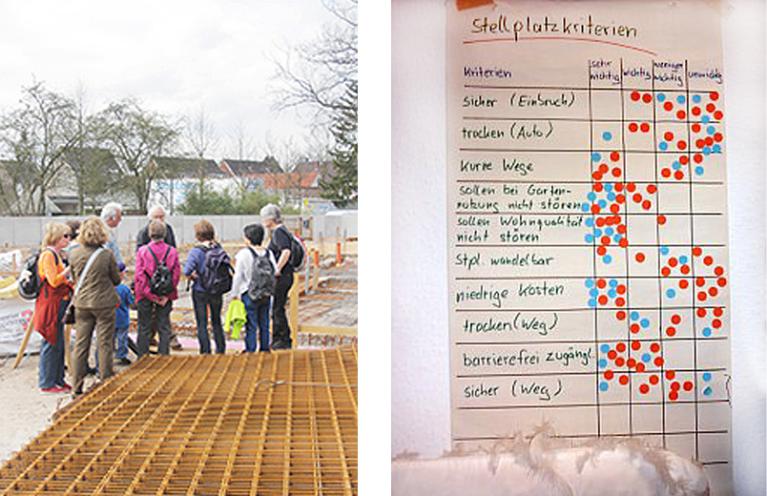 Stellplatzkriterien
Kriterien sehr wichtig wichtig weniger wichtig unwichtig
sicher (Einbruch)
trocken (Auto)
kurze Wege
sollen bei Garten-
nutzung nicht stören
sollen Wohnqualität
nicht stören
Stpl. wandelbar
niedrige Kosten
trocken (Weg)
barrierefrei zugängl.
sicher (Weg)